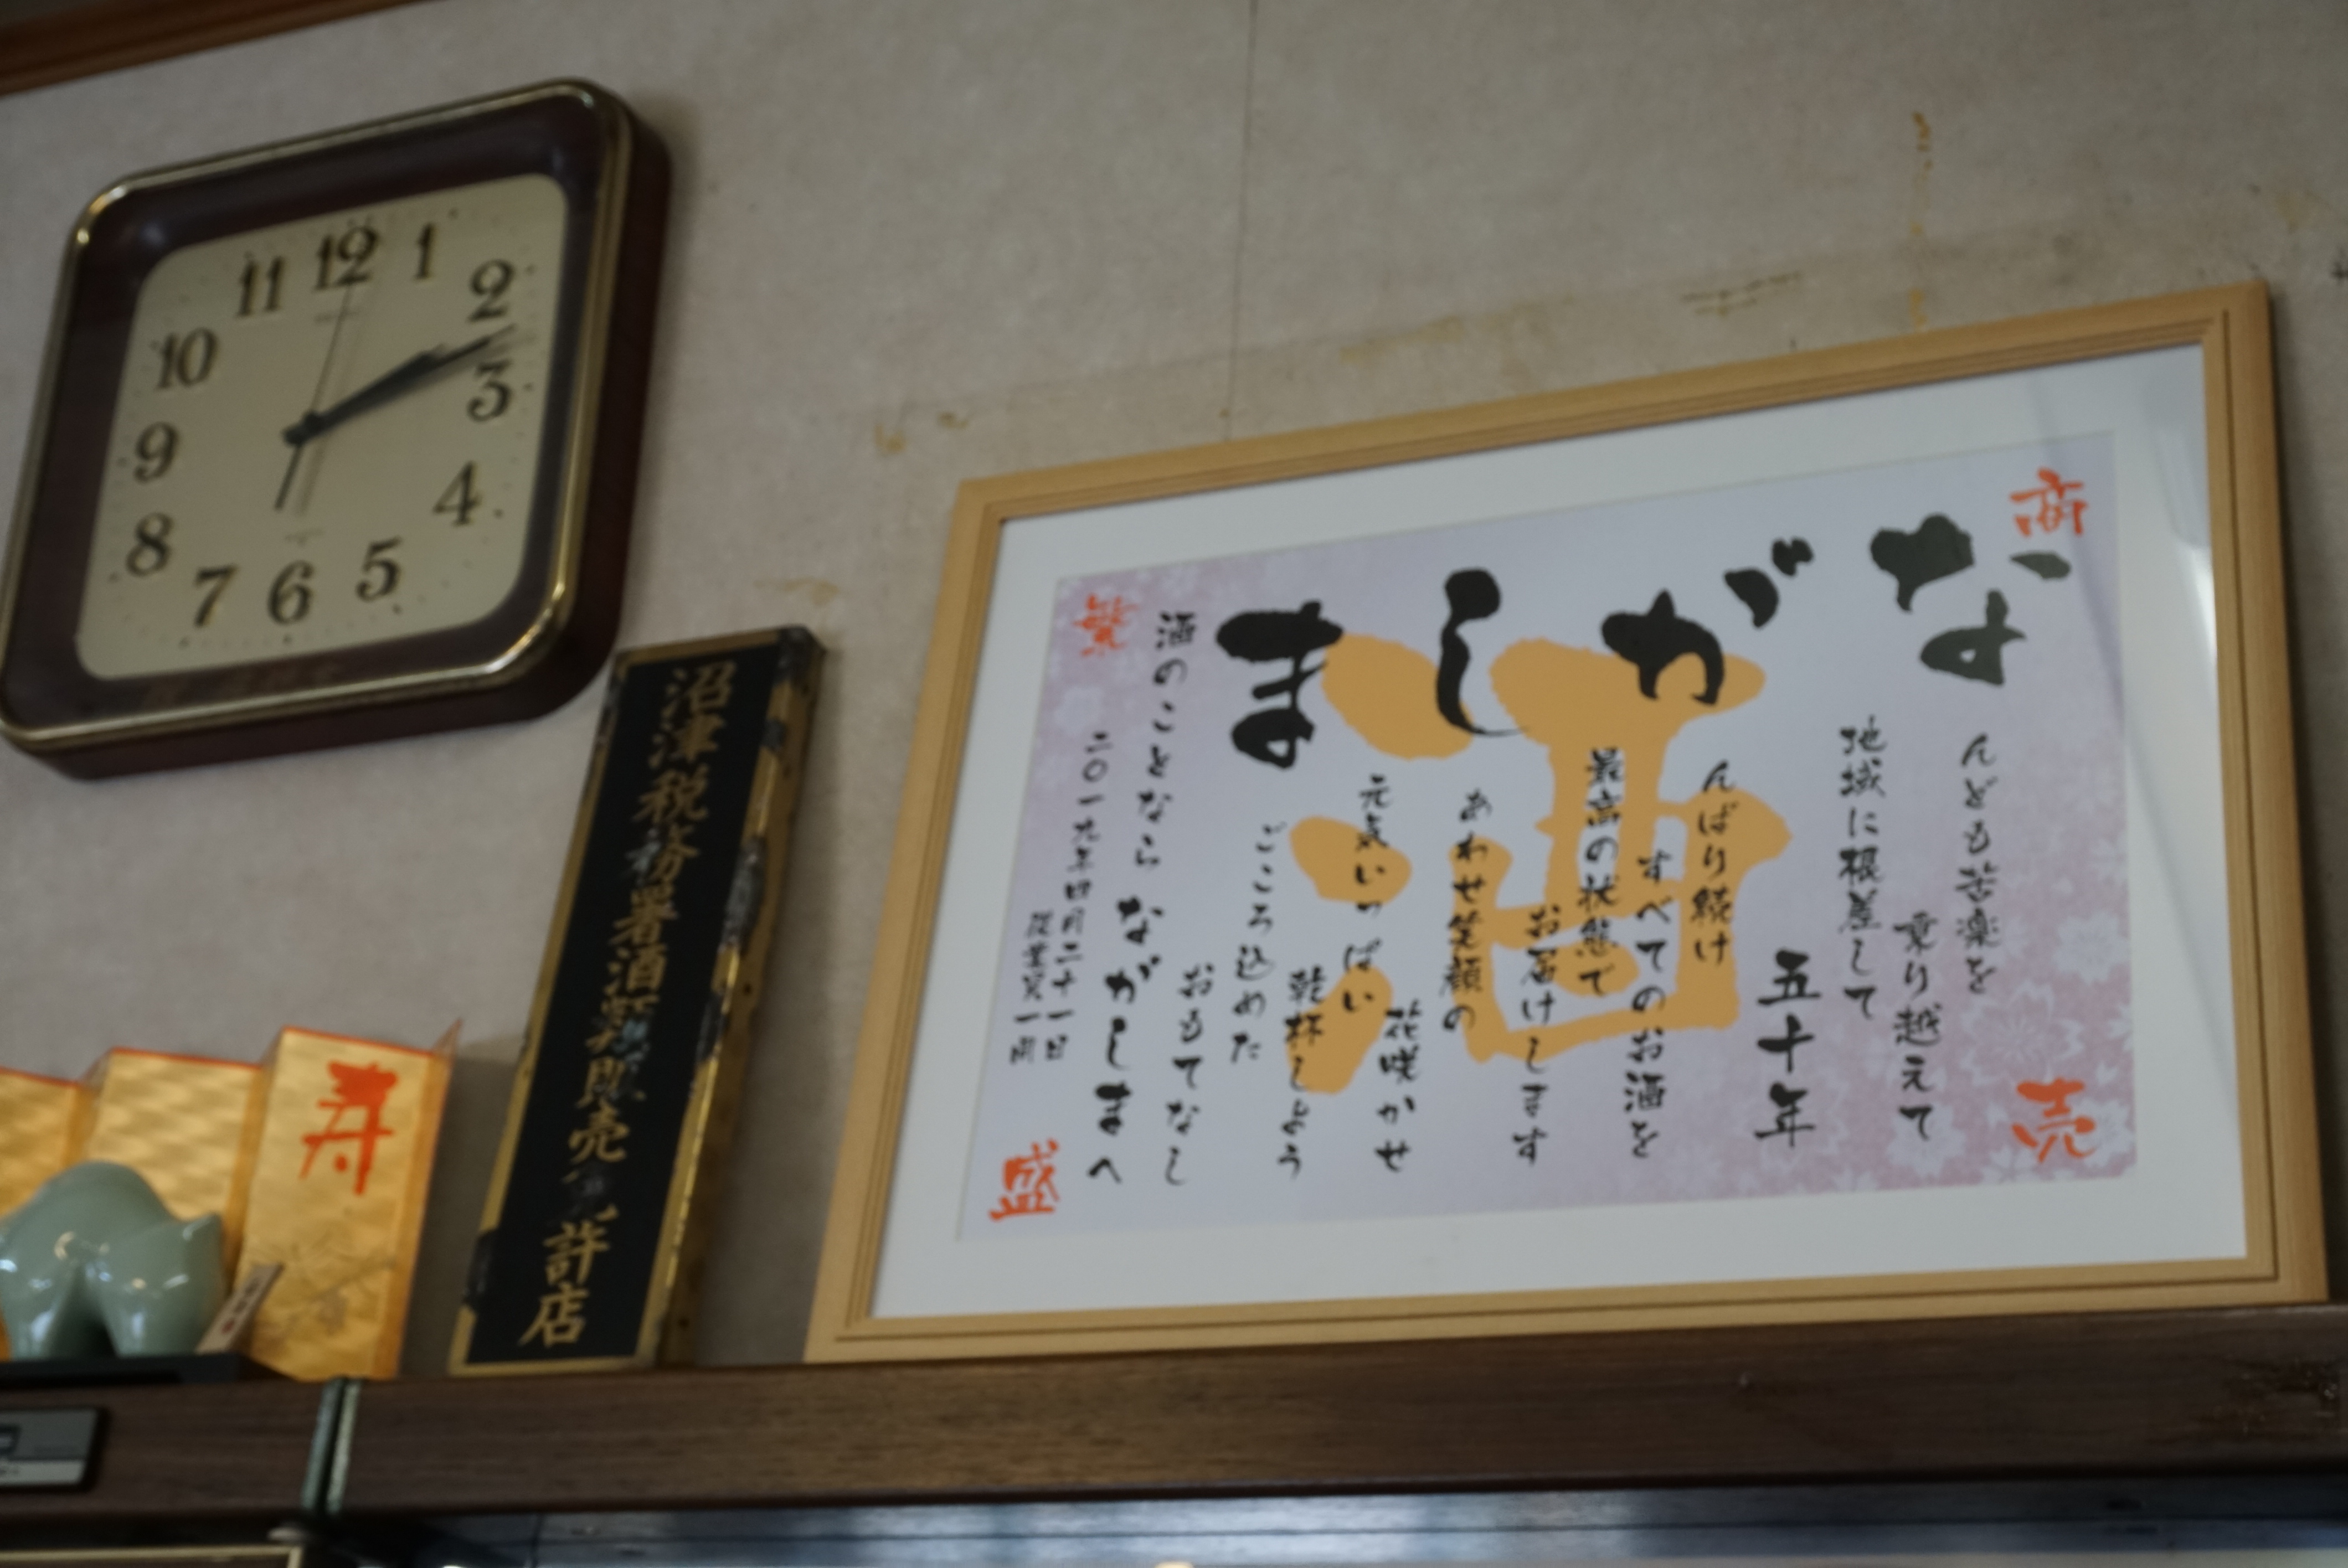 12
1
2
3
4
5
6
7
8
9
10
11
沼津税務署酒類販売免許店
寿
商売
繁盛
酒
ながしま
なんども苦楽を
乗り越えて
地域に根差して
五十年
がんばり続け
すべてのお酒を
最高の状態で
お届けします
しあわせ笑顔の
花咲かせ
元気いっぱい
乾杯しよう
まごころ込めた
おもてなし
酒のことなら ながしまへ
二〇一九年四月二十一日
従業員一同